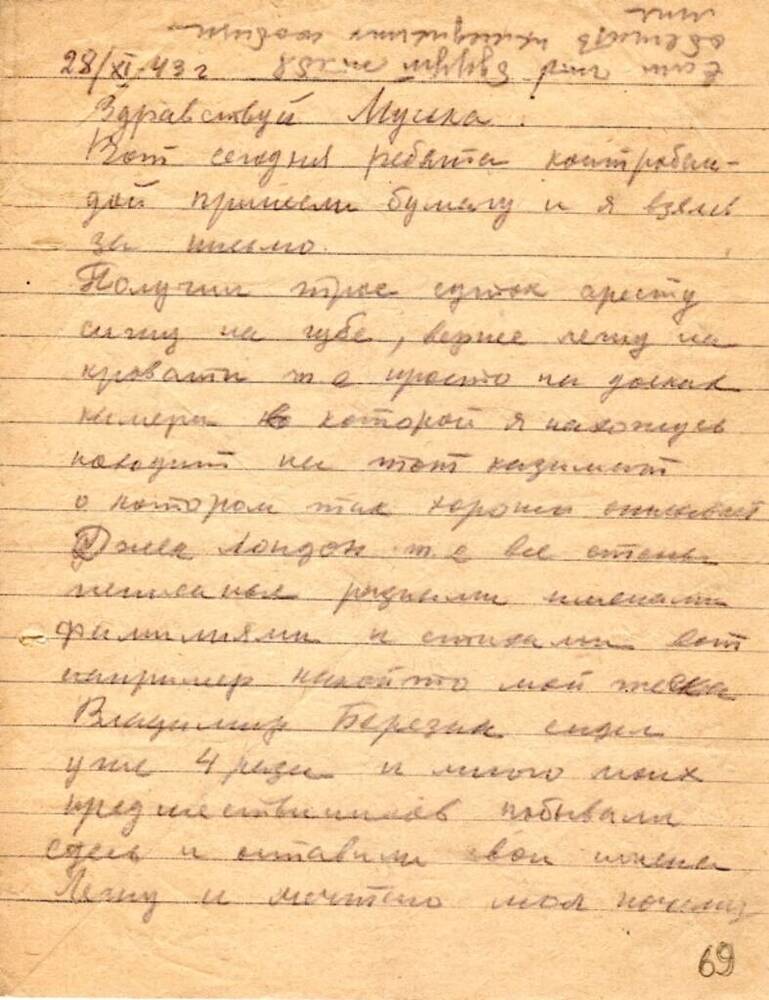 28/XI-43 г
Здравствуй Муська
Вот сегодня ребята контробан-
дой принесли бумагу и я взялся
за письмо.
Получил трое суток аресту
сижу на губе, вернее лежу на
кровати т е просто на досках
камера в которой я нахожусь
походит на тот каземат
о котором так хорошо описывает
Джек Лондон т е все стены
исписаные разными именами
фамилиями и стихами вот
например какой то мой теска
Владимир Березик сидел
уже 4 раза и много моих
предшественников побывали
здесь и оставили свои имена
Лежу и мечтаю мол почему
69